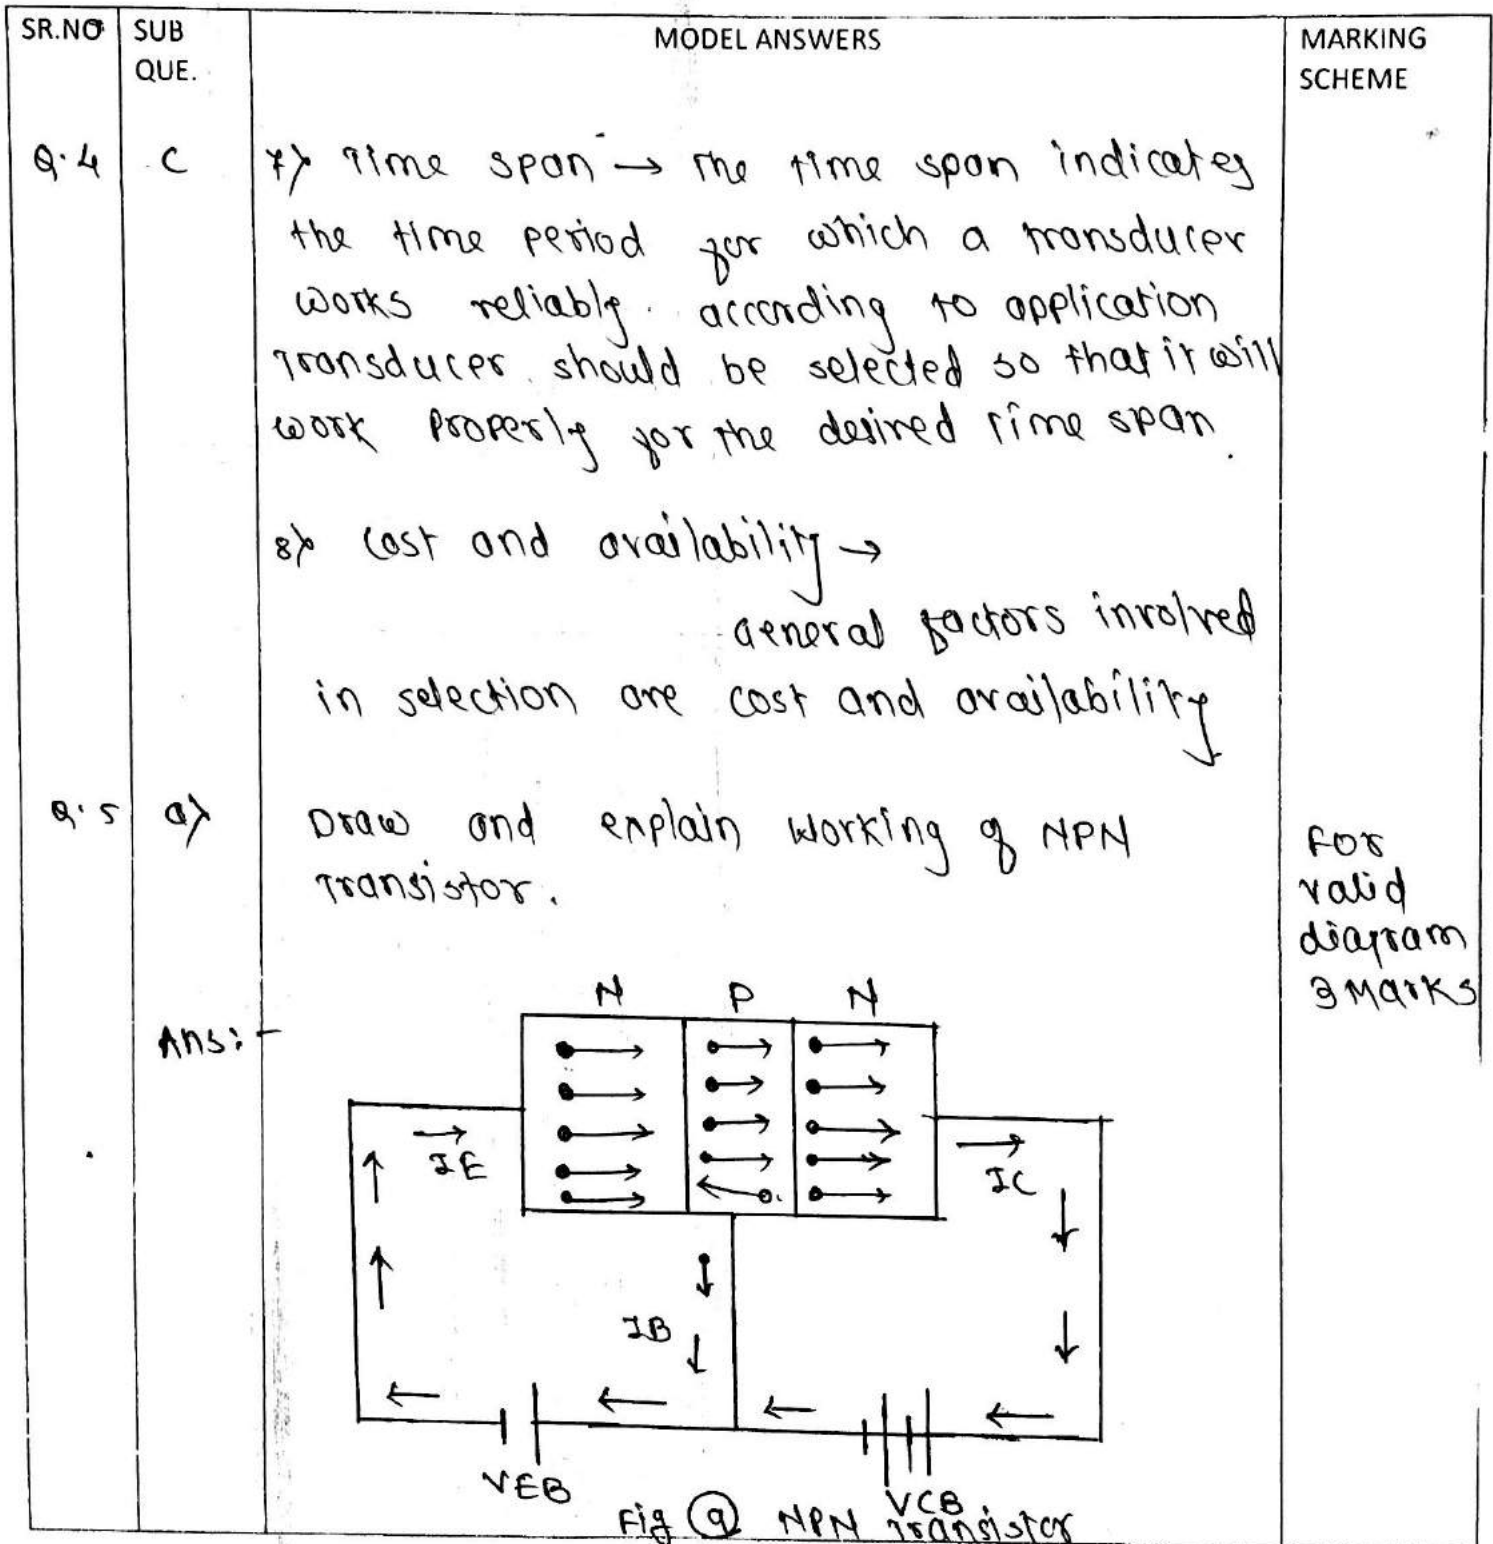 SR.NO SUB QUE. MODEL ANSWERS MARKING SCHEME
Q.4 C 7) Time span → The time span indicates
the time period for which a transducer
works reliably. according to application
Transducer should be selected so that it will
work properly for the desired time span.
8) cost and availability →
General factors involved
in selection are cost and availability
Q.5 a) Draw and explain working of NPN
Transistor.
For
valid
diagram
3 Marks
Ans:-
N P N
IE
IC
IB
VEB
VCB
Fig (a) NPN Transistor